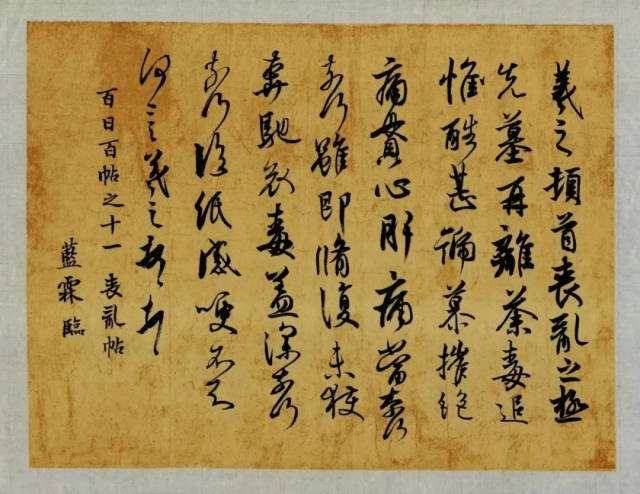 羲之頓首喪亂之極
先墓再離荼毒追
惟酷甚號慕摧絕
痛貫心肝痛當奈何
奈何雖即脩復未獲
奔馳哀毒益深奈何
奈何臨紙感哽不知
何言羲之頓首頓首
百日百帖之十一 喪亂帖
藍霖臨